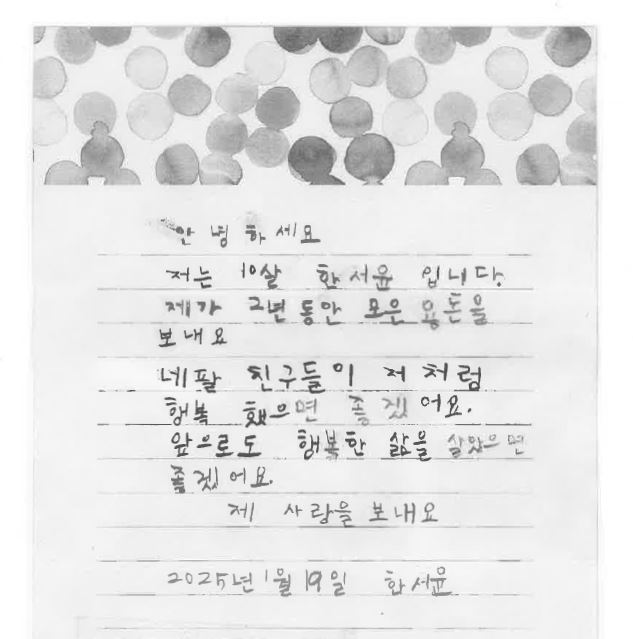 안녕하세요
저는 10살 한서윤 입니다.
제가 2년 동안 모은 용돈을
보내요
네팔 친구들이 저 처럼
행복 했으면 좋겠어요.
앞으로도 행복한 삶을 살았으면
좋겠어요.
제 사랑을 보내요
2025년 1월 19일 한서윤